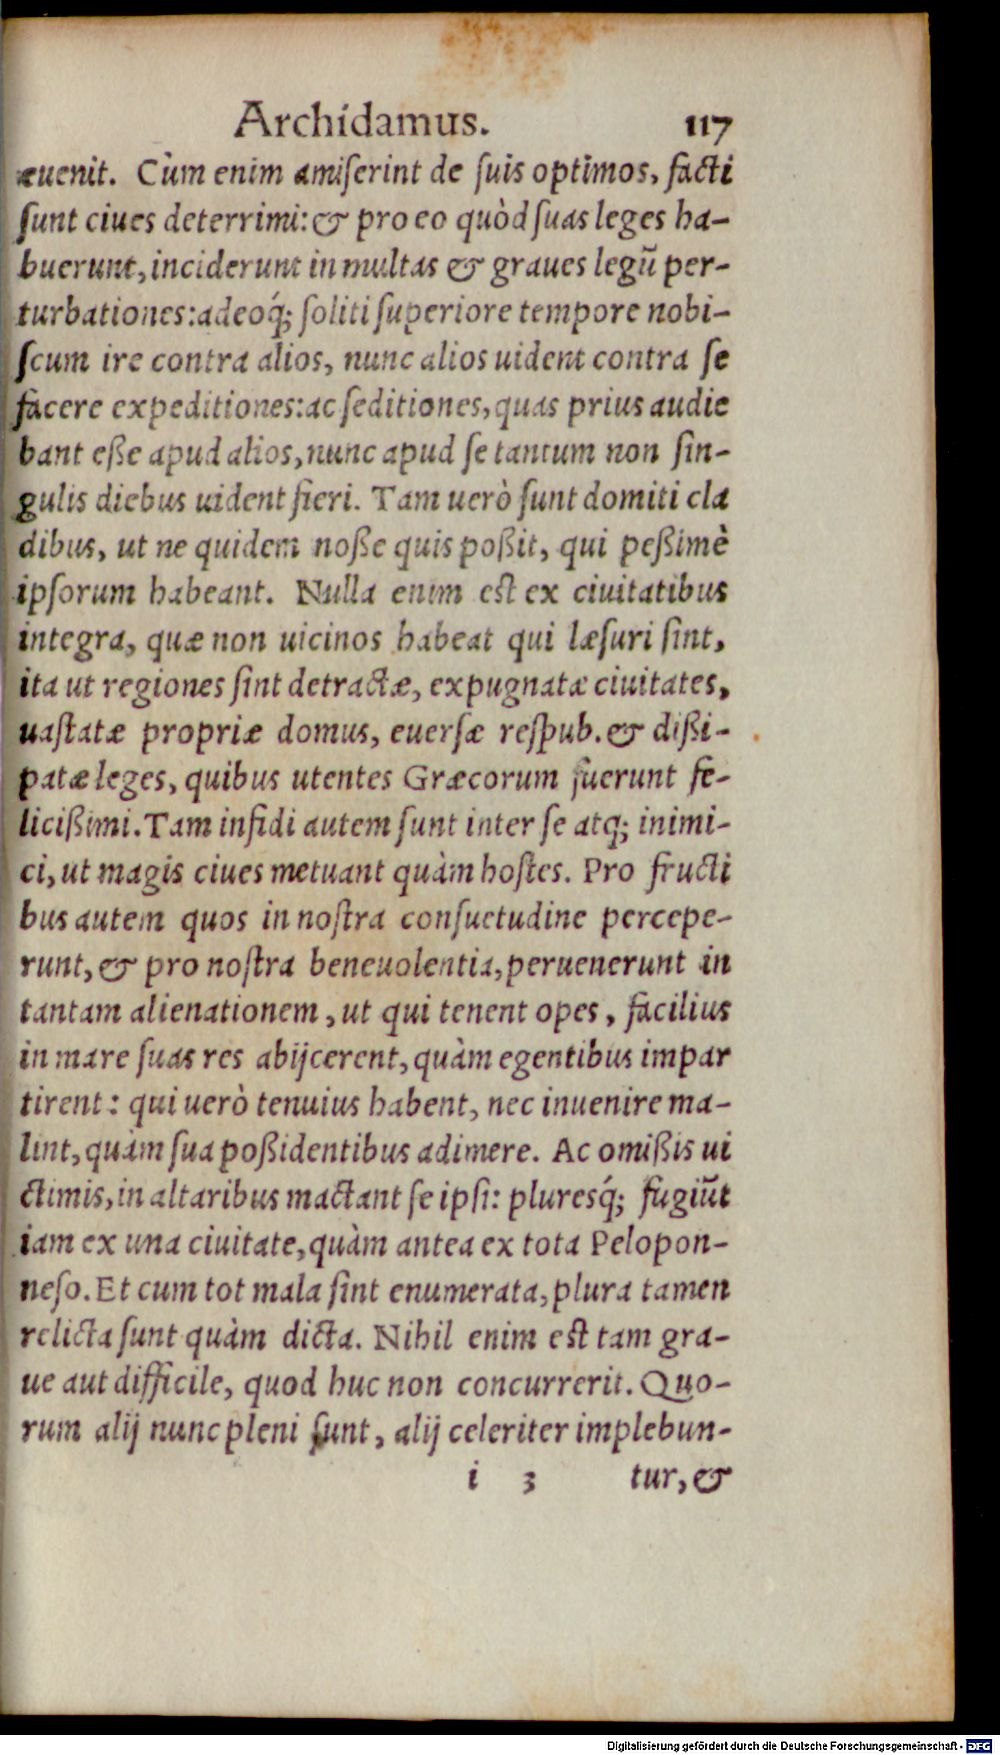 Archidamus. 117
euenit. Cùm enim amiſerint de ſuis optimos, facti
ſunt ciues deterrimi: & pro eo quòd ſuas leges ha-
buerunt, inciderunt in multas & graues legũ per-
turbationes: adeoq́; ſoliti ſuperiore tempore nobi-
ſcum ire contra alios, nunc alios uident contra ſe
facere expeditiones: ac ſeditiones, quas prius audie
bant eße apud alios, nunc apud ſe tantum non ſin-
gulis diebus uident fieri. Tam uerò ſunt domiti cla
dibus, ut ne quidem noße quis poßit, qui peßimè
ipſorum habeant. Nulla enim eſt ex ciuitatibus
integra, quæ non uicinos habeat qui læſuri ſint,
ita ut regiones ſint detractæ, expugnatæ ciuitates,
uaſtatæ propriæ domus, euerſæ reſpub. & dißi-
patæ leges, quibus utentes Græcorum fuerunt fe-
licißimi. Tam infidi autem ſunt inter ſe atq; inimi-
ci, ut magis ciues metuant quàm hoſtes. Pro fructi
bus autem quos in noſtra conſuetudine percepe-
runt, & pro noſtra beneuolentia, peruenerunt in
tantam alienationem, ut qui tenent opes, facilius
in mare ſuas res abijcerent, quàm egentibus impar
tirent: qui uerò tenuius habent, nec inuenire ma-
lint, quàm ſua poßidentibus adimere. Ac omißis ui
ctimis, in altaribus mactant ſe ipſi: pluresq́; fugiũt
iam ex una ciuitate, quàm antea ex tota Pelopon-
neſo. Et cum tot mala ſint enumerata, plura tamen
relicta ſunt quàm dicta. Nihil enim eſt tam gra-
ue aut difficile, quod huc non concurrerit. Quo-
rum alij nunc pleni ſunt, alij celeriter implebun-
i 3 tur, &
Digitalisierung gefördert durch die Deutsche Forschungsgemeinschaft - DFG